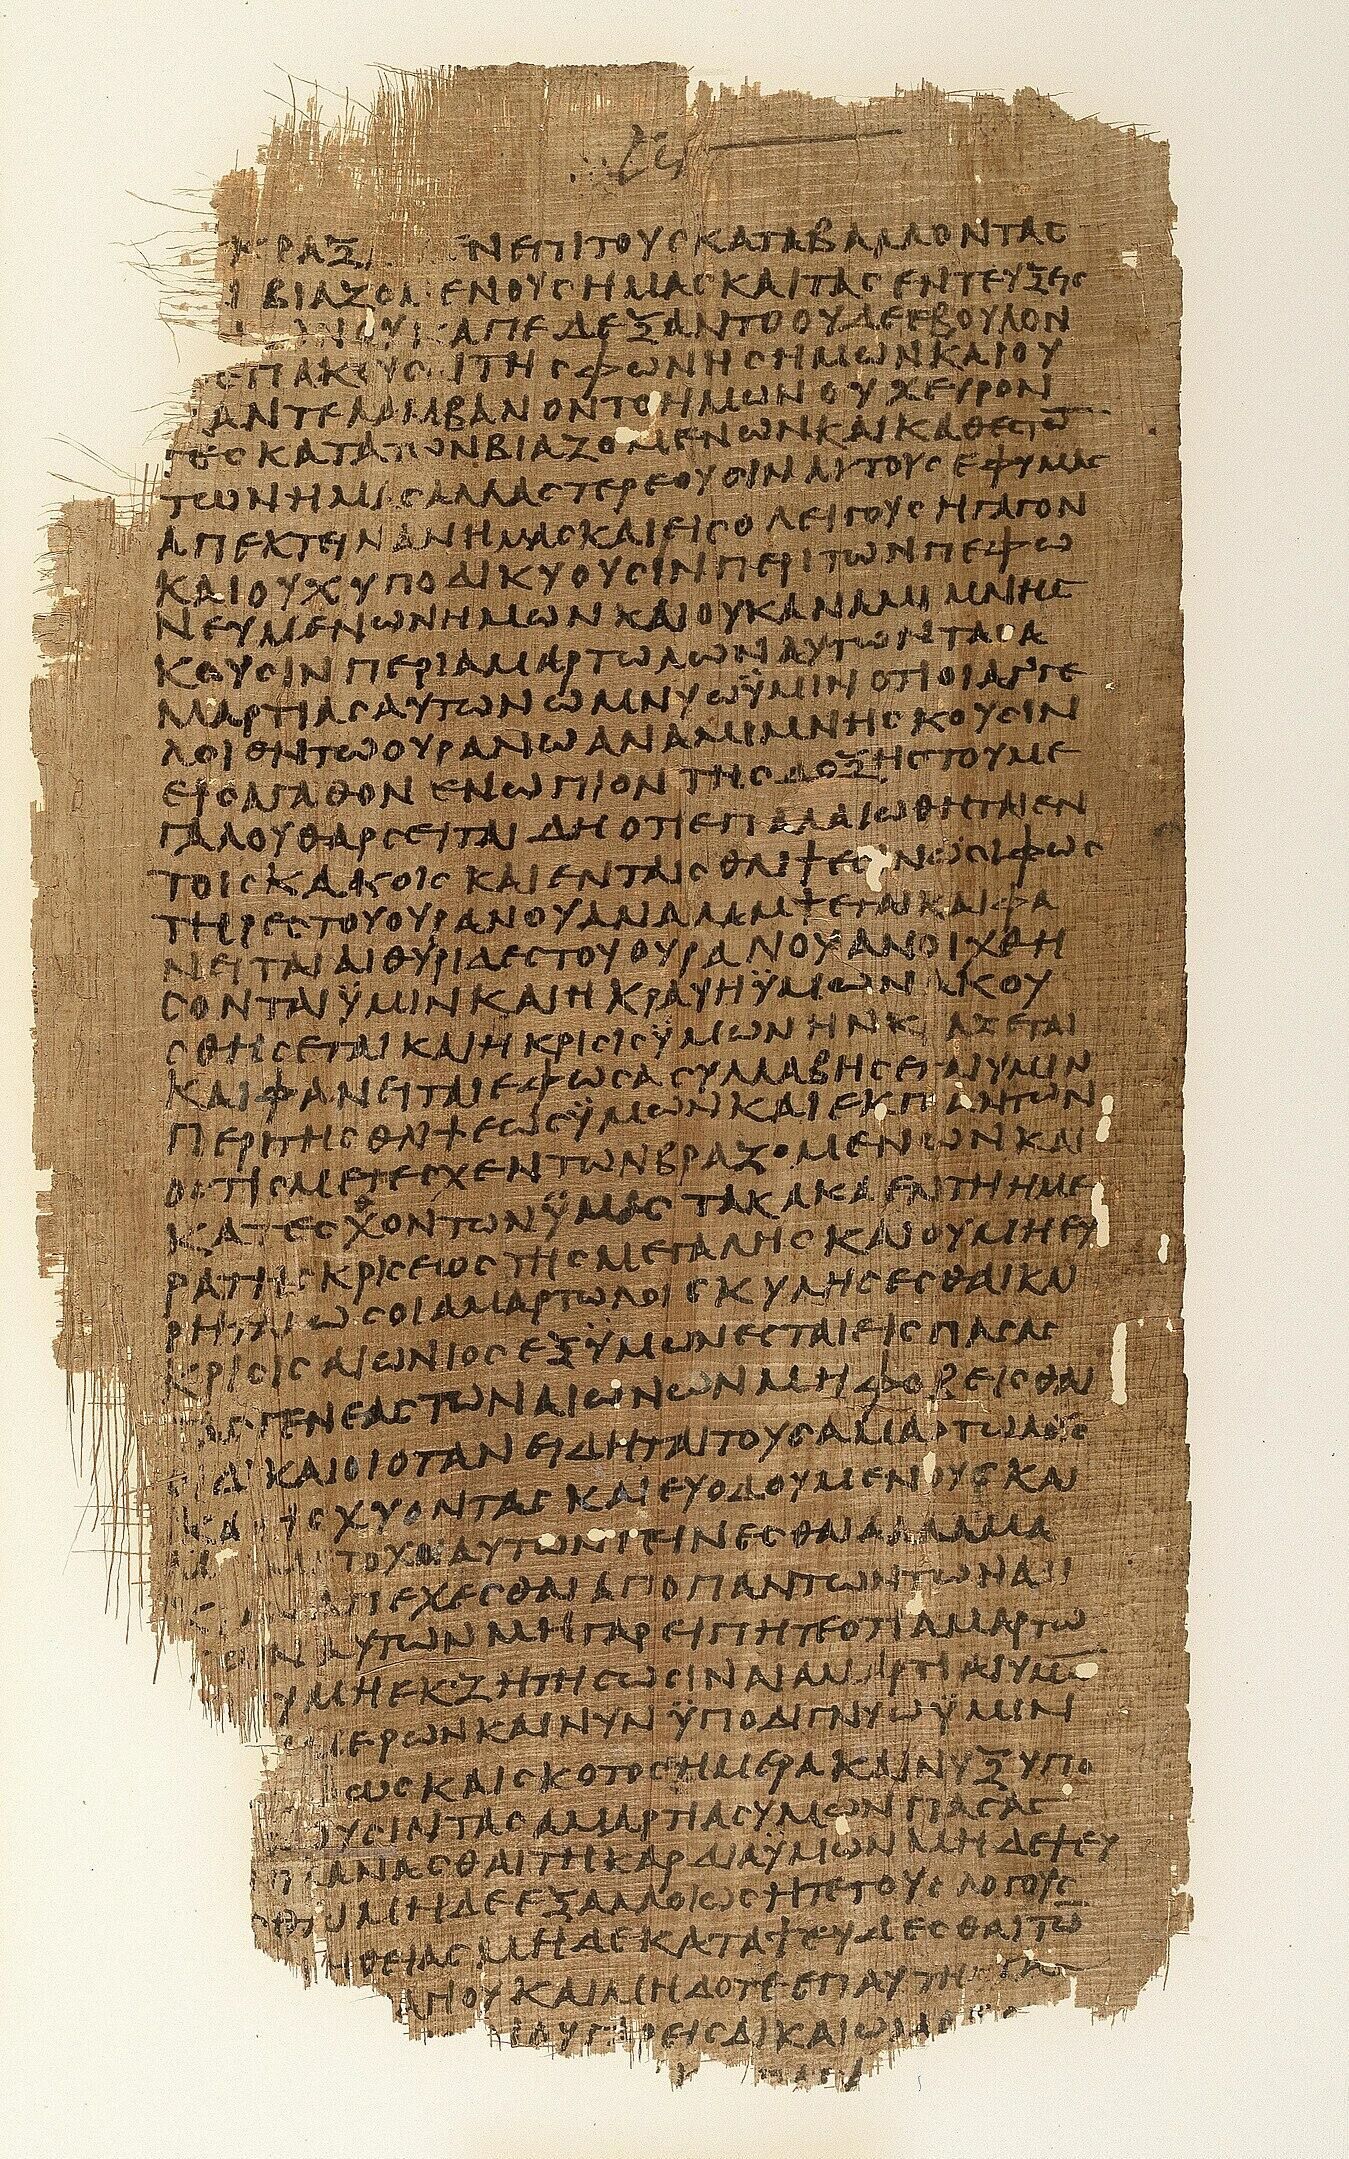 ΕΝΕΠΙΤΟΥϹΚΑΤΑΒΑΛΛΟΝΤΑϹ
ΒΙΑΖΟΜΕΝΟΥϹΗΜΑϹΚΑΙΤΑϹΕΝΤΕΥΞΕΙϹ
ΑΠΕΔΕΞΑΝΤΟΟΥΔΕΕΒΟΥΛΟΝ
ΕΠΑΚΟΥϹΑΙΤΗϹΦΩΝΗϹΗΜΩΝΚΑΙΟΥ
ΑΝΤΕΛΑΜΒΑΝΟΝΤΟΗΜΩΝΟΥΧΕΥΡΟΝ
ΤΕϹΚΑΤΑΤΩΝΒΙΑΖΟΜΕΝΩΝΚΑΙΚΑΘΕϹΤΩ̅
ΤΩΝΗΜΑϹΑΛΛΑϹΤΕΡΕΟΥϹΙΝΑΥΤΟΥϹΕΦΥΜΑϹ
ΑΠΕΚΤΕΙΝΑΝΗΜΑϹΚΑΙΕΙϹΟΛΕΙΓΟΥϹΗΓΑΓΟΝ
ΚΑΙΟΥΧΥΠΟΔΙΚΥΟΥϹΙΝΠΕΡΙΤΩΝΠΕΦΩ
ΝΕΥΜΕΝΩΝΗΜΩΝΚΑΙΟΥΚΑΝΑΜΙΜΝΗϹ
ΚΟΥϹΙΝΠΕΡΙΑΜΑΡΤΩΛΩΝΑΥΤΩΝΤΑϹΑ
ΜΑΡΤΙΑϹΑΥΤΩΝΟΜΝΥΩΫΜΙΝΟΤΙΟΙΑΓΓΕ
ΛΟΙΕΝΤΩΟΥΡΑΝΩΑΝΑΜΙΜΝΗϹΚΟΥϹΙΝ
ΕΙϹΑΓΑΘΟΝΕΝΩΠΙΟΝΤΗϹΔΟΞΗϹΤΟΥΜΕ
ΓΑΛΟΥΘΑΡϹΕΙΤΑΙΔΗΟΤΙΕΠΑΛΑΙΩΘΗΤΑΙΕΝ
ΤΟΙϹΚΑΚΟΙϹΚΑΙΕΝΤΑΙϹΘΛΙΨΕϹΙΝΩϹΙΦΩϹ
ΤΗΡΕϹΤΟΥΟΥΡΑΝΟΥΑΝΑΛΑΜΨΕΤΑΙΚΑΙΦΑ
ΝΕΙΤΑΙΑΙΘΥΡΙΔΕϹΤΟΥΟΥΡΑΝΟΥΑΝΟΙΧΘΗ
ϹΟΝΤΑΙΫΜΙΝΚΑΙΗΚΡΑΥΗΫΜΩΝΑΚΟΥ
ϹΘΗϹΕΤΑΙΚΑΙΗΚΡΙϹΙϹΫΜΩΝΗΝΚΡΑΖΕΤΑΙ
ΚΑΙΦΑΝΕΙΤΑΙΕΦΩϹΑϹΥΛΛΑΒΗϹΕΤΑΙΥΜΙΝ
ΠΕΡΙΤΗϹΘΛΙΨΕΩϹΫΜΩΝΚΑΙΕΚΠΑΝΤΩΝ
ΟϹΤΙϹΜΕΤΕϹΧΕΝΤΩΝΒΡΑΖΟΜΕΝΩΝΚΑΙ
ΚΑΤΕϹΘΟΝΤΩΝΫΜΑϹΤΑΚΑΚΑΕΝΤΗΗΜΕ
ΡΑΤΗϹΚΡΙϹΕΙΟϹΤΗϹΜΕΓΑΛΗϹΚΑΙΟΥΜΗΕΥ
ΡΗΤΑΙΩϹΟΙΑΜΑΡΤΩΛΟΙϹΚΥΛΗϹΕϹΘΑΙΚΑΙ
ΚΡΙϹΙϹΑΙΩΝΙΟϹΕΞΫΜΩΝΕϹΤΑΙΕΙϹΠΑϹΑϹ
ΤΑϹΓΕΝΕΑϹΤΩΝΑΙΩΝΩΝΜΗΦΟΒΕΙϹΘΑΙ
ΟΙΔΙΚΑΙΟΙΟΤΑΝΕΙΔΗΤΑΙΤΟΥϹΑΜΑΡΤΩΛΟΥϹ
ΚΑΤΙϹΧΥΟΝΤΑϹΚΑΙΕΥΟΔΟΥΜΕΝΟΥϹΚΑΙ
ΤΟΧΟΙΑΥΤΩΝΓΕΙΝΕϹΘΑΙΑΛΛΑΜΑ
ΑΠΕΧΕϹΘΑΙΑΠΟΠΑΝΤΩΝΤΩΝΑΔΙ
ΑΥΤΩΝΜΗΓΑΡΕΙΠΗΤΕΟΤΙΑΜΑΡΤΩ
ΥΜΗΕΚΖΗΤΗϹΩϹΙΝΑΙΑΜΑΡΤΙΑΙΥΜΩ̅
ΜΕΡΩΝΚΑΙΝΥΝΫΠΟΔΙΓΝΥΩΫΜΙΝ
ΩϹΚΑΙϹΚΟΤΟϹΗΜΕΡΑΚΑΙΝΥΞΥΠΟ
ΟΥϹΙΝΤΑϹΑΜΑΡΤΙΑϹΥΜΩΝΠΑϹΑϹ
ΠΛΑΝΑϹΘΑΙΤΗΚΑΡΔΙΑΫΜΩΝΜΗΔΕΨΕΥ
ΜΗΔΕΕΞΑΛΛΟΙΩϹΗΤΕΤΟΥϹΛΟΓΟΥϹ
ΗΘΕΙΑϹΜΗΔΕΚΑΤΑΨΕΥΔΕϹΘΑΙΤΩ̅
ΑΓΙΟΥΚΑΙΜΗΔΟΤΕΕΠΑΥΤΗ
ΕΙϹΔΙΚΑΙΩΜΑ